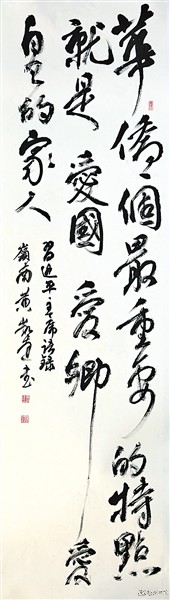 華僑一個最重要的特點
就是愛國愛鄉愛
自己的家人
習近平主席語錄
嶺南黄書